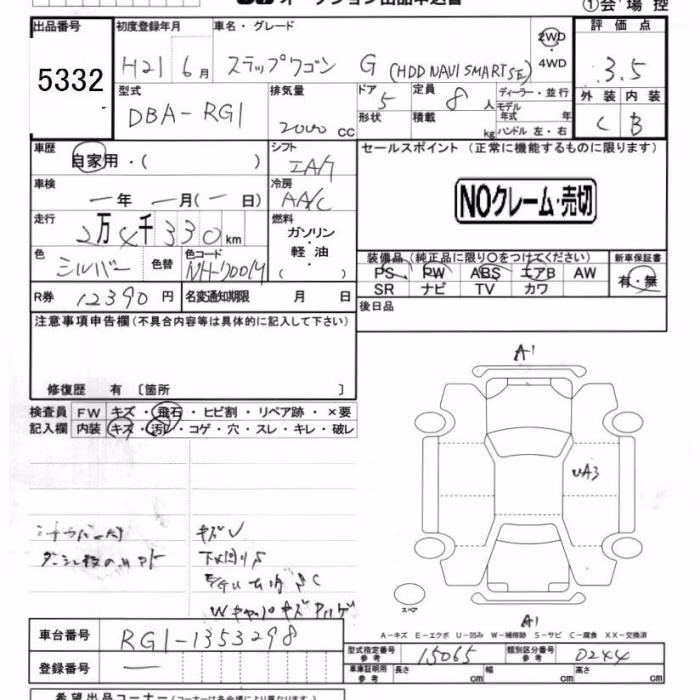 オークション出品申込書
①会場控
出品番号 初度登録年月 車名・グレード 評価点
5332 H21 6月 ステップワゴン G (HDD NAVI SMART SE) 2WD・4WD 3.5
型式 排気量 ドア 定員 ディーラー・並行 外装 内装
DBA-RG1 2000 CC 5 8人 モデル年式 年 C B
形状 積載 kg ハンドル 左・右
車歴 シフト セールスポイント (正常に機能するものに限ります)
自家用・( )
車検 冷房 NOクレーム・売切
一年 一月(一日) AA/C
走行 燃料
2万4千330km ガソリン・軽油・( )
装備品(純正品に限り○をつけてください) 新車保証書
色 色替 色コード
シルバー NH-700M
PS PW ABS エアB AW 有・無
SR ナビ TV カワ
R券 12390円 名変通知期限 月 日
後日品
注意事項申告欄(不具合内容等は具体的に記入して下さい)
A1
修復歴 有 〔箇所 〕
検査員 FW キズ・飛石・ヒビ割・リペア跡・×要
記入欄 内装 キズ・汚レ・コゲ・穴・スレ・キレ・破レ
UA3
キズ
スペア
A1
A-キズ E-エクボ U-凹み W-補修跡 S-サビ C-腐食 XX-交換済
車台番号 RG1-1353298
型式指定番号 参考 15065 類別区分番号 参考 0244
登録番号 一
車庫証明用 参考 長さ cm 幅 cm 高さ cm
希望出品コーナー(コーナーは各会場により異なります)